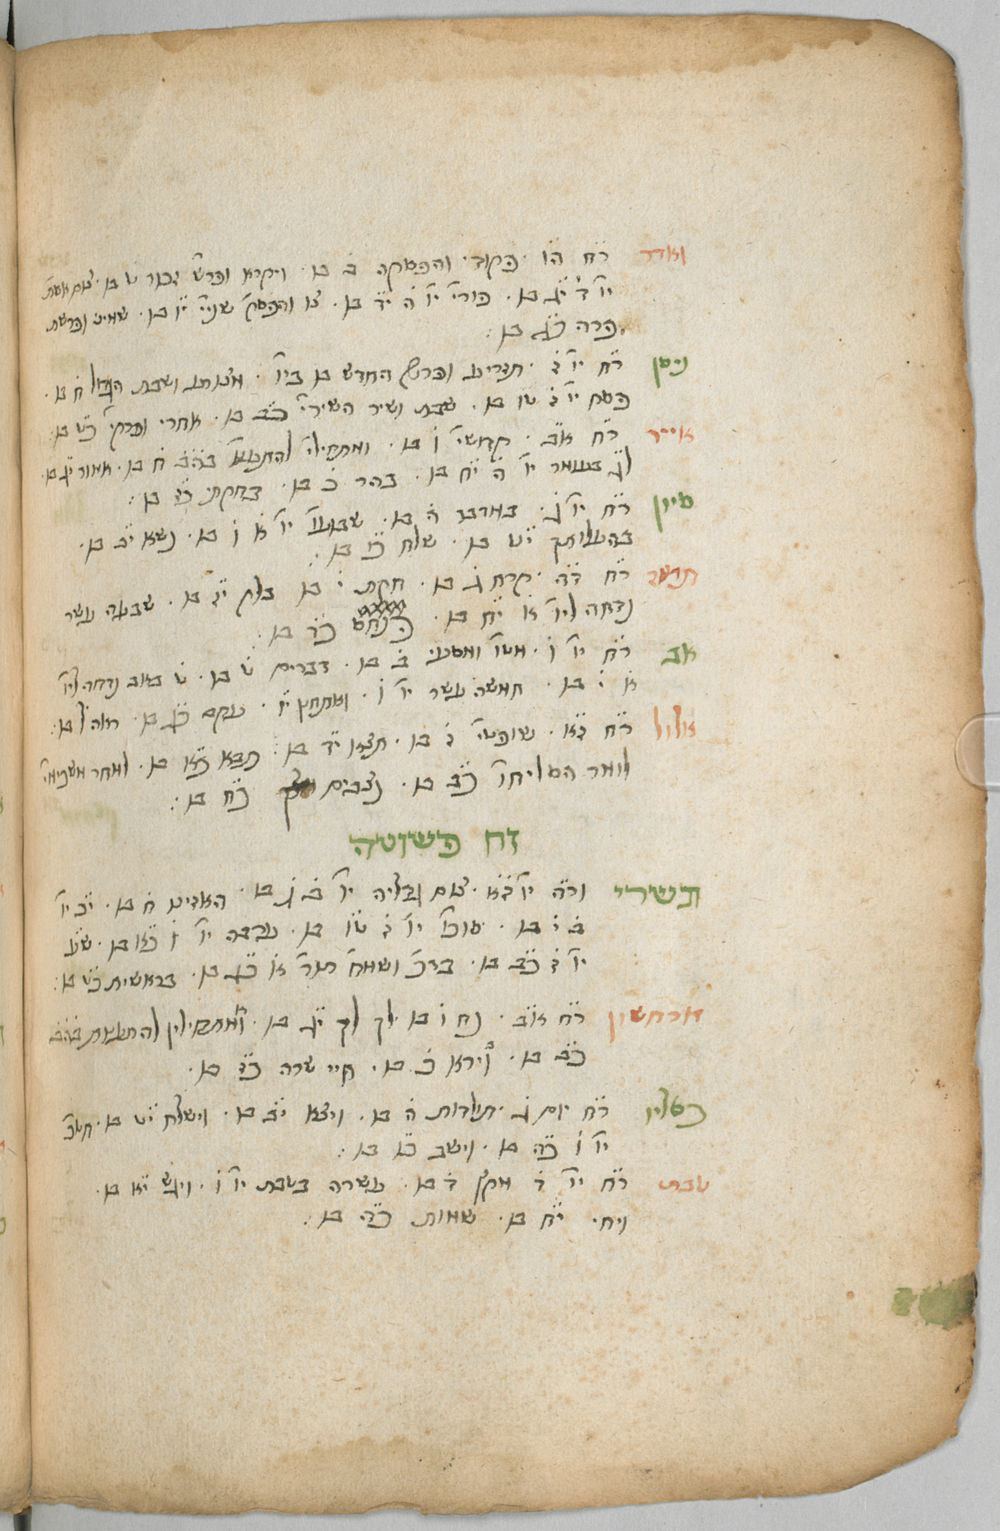 ואדר ר̈ח ה̇ו̇ · פקוד · והפסקה ב̇ בו · ויקרא ופרש׳ זכור ט̇ בו · צום אסת׳
יו׳ ד̇ י̈ג בו · פורי׳ יו׳ ה̇ י̈ד בו · צו והפסק׳ שניי׳ י̈ו בו · שמיני ופרשת
פרה כ̈ג בו :
ניסן ר̈ח יו׳ ז̇ · תזריע ופרש׳ החדש בו ביו׳ · מצורע ושבת הגדול ח̇ בו ·
פסח יו׳ ז̇ ט̈ו בו · שבת ושיר השירי׳ כ̈ב בו · אחרי ופרקי׳ כ̈ט בו ·
אייר ר̈ח א̈ב · קדושי׳ ו̇ בו · ומתחילי׳ להתענו׳ ב̈ה̈ב ח̇ בו · אמור י̈ג בו ·
ל̈ג בעומר יו׳ ה̇ י̈ח בו · בהר כ̇ בו · בחקתי כ̈ז בו :
סיון ר̈ח יו׳ ג̇ · במדבר ה̇ בו · שבוע׳ יו׳ א̇ ו̇ בו · נשא י̈ב בו ·
בהעלותך י̈ט בו · שלח כ̈ו בו :
תמוז ר̈ח ד̈ה · קרח ג̇ בו · חקת י̇ בו בלק י̈ז בו · שבעה עשר
נדחה ליו׳ א̇ י̈ח בו · פינחס כ̈ד בו :
אב ר̈ח יו׳ ו̇ · מטו׳ ומסעי ב̇ בו · דברים ט̇ בו · ט̇ באב נדחה ליו׳
א̇ י̇ בו · חמשה עשר יו׳ ו̇ · ואתחנן י̈ו · עקב כ̈ג בו · ראה ל̇ בו :
אלול ר̈ח ז̈א · שופטי׳ ז̇ בו · תצא י̈ד בו · תבא כ̈א בו · למחר משכימי׳
לומר הסליחו׳ כ̈ב בו · נצבים כ̈ח בו :
ז̇ח פשוטה
תשרי ור̈ה יו׳ ז̈א · צום גדליה יו׳ ב̇ ג̇ בו · האזינו ח̇ בו · י̈כ יו׳
ב̇ י̇ בו · סוכו׳ יו׳ ז̇ ט̈ו בו · ערבה יו׳ ו̇ כ̈א בו · ש̈ע
יו׳ ז̇ כ̈ב בו · ברכ׳ ושמח׳ תור׳ א̇ כ̈ג בו · בראשית כ̈ט בו :
מרחשון ר̈ח א̈ב · נח ו̇ בו · לך לך י̈ג בו · ומתחילין להתענות ב̈ה̈ב
כ̈ב בו · וירא כ̇ בו · חיי שרה כ̈ז בו ·
כסליו ר̈ח יום ג̇ · תולדות ה̇ בו · ויצא י̈ב בו · וישלח י̈ט בו · חנוכ׳
יו׳ ו̇ כ̈ה בו · וישב כ̈ו בו :
טבת ר̈ח יו׳ ד̇ מקץ ד̇ בו · עשרה בטבת יו׳ ו̇ · ויגש י̈א בו ·
ויחי י̈ח בו · שמות כ̈ה בו :